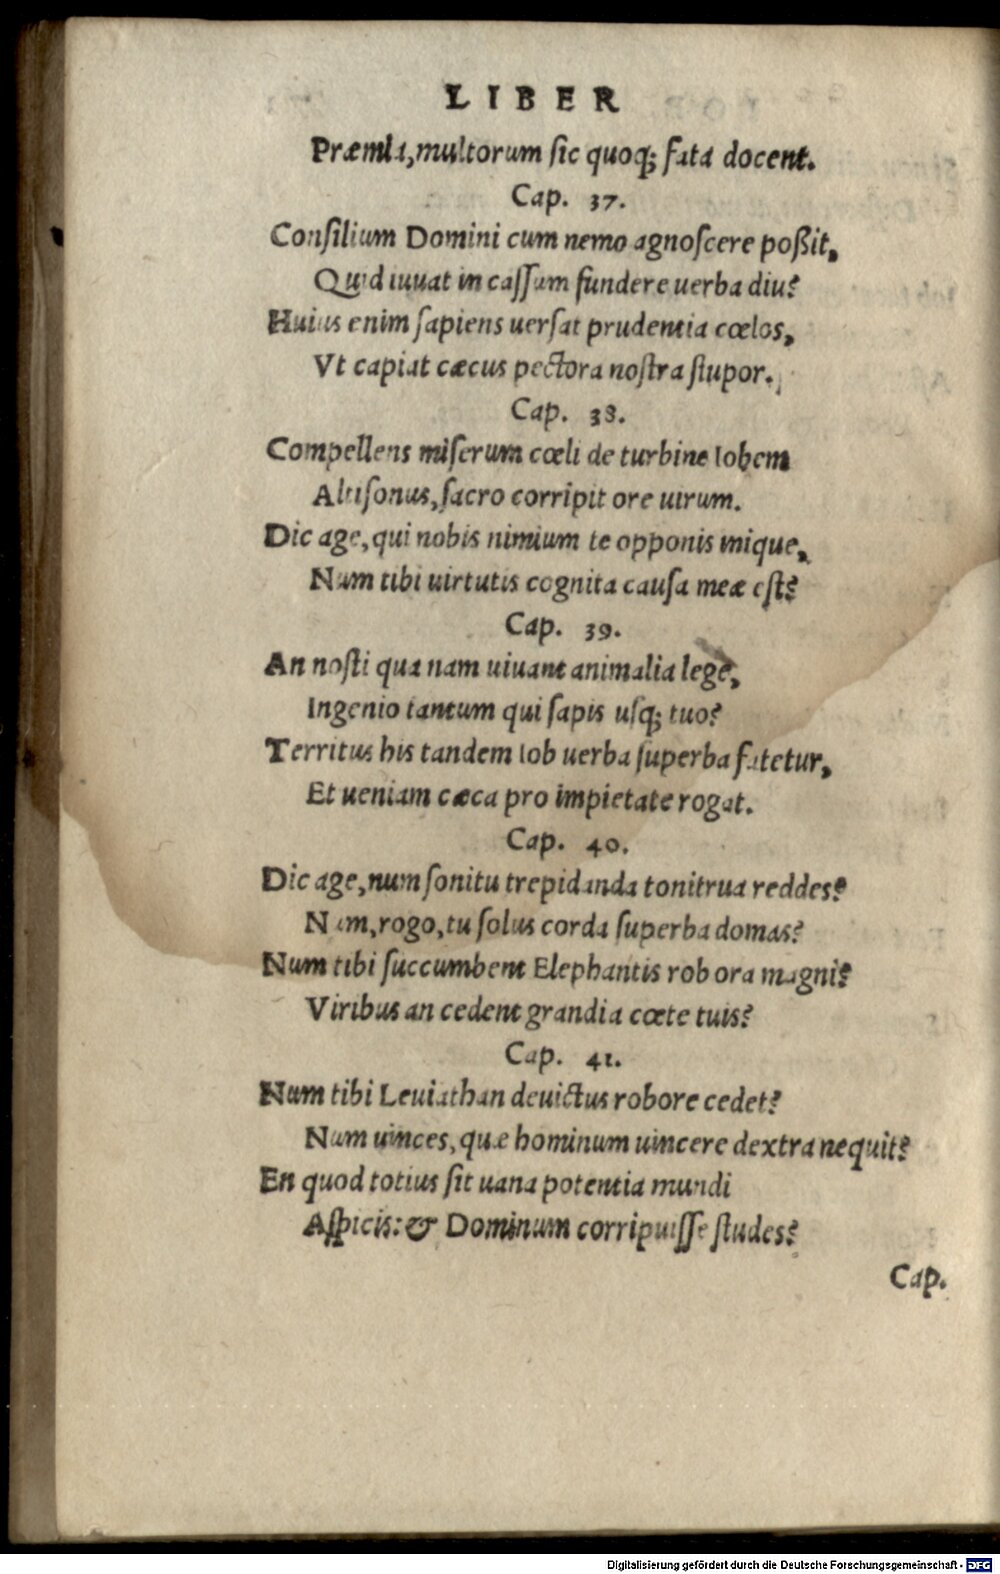 LIBER
Præmia, multorum ſic quoq; fata docent.
Cap. 37.
Conſilium Domini cum nemo agnoſcere poßit,
Quid iuuat in caſſum fundere uerba diu?
Huius enim ſapiens uerſat prudentia cœlos,
Vt capiat cæcus pectora noſtra ſtupor.
Cap. 38.
Compellens miſerum cœli de turbine Iobem
Altiſonus, ſacro corripit ore uirum.
Dic age, qui nobis nimium te opponis inique,
Nam tibi uirtutis cognita cauſa meæ eſt?
Cap. 39.
An noſti qua nam uiuant animalia lege,
Ingenio tantum qui ſapis uſq; tuo?
Territus his tandem Iob uerba ſuperba fatetur,
Et ueniam cæca pro impietate rogat.
Cap. 40.
Dic age, num ſonitu trepidanda tonitrua reddes?
Nam, rogo, tu ſolus corda ſuperba domas?
Num tibi ſuccumbent Elephantis robora magni?
Viribus an cedent grandia cœte tuis?
Cap. 41.
Num tibi Leuiathan deuictus robore cedet?
Num uinces, quæ hominum uincere dextra nequit?
En quod totius ſit uana potentia mundi
Aſpicis: & Dominum corripuiſſe ſtudes?
Cap.
Digitalisierung gefördert durch die Deutsche Forschungsgemeinschaft - DFG